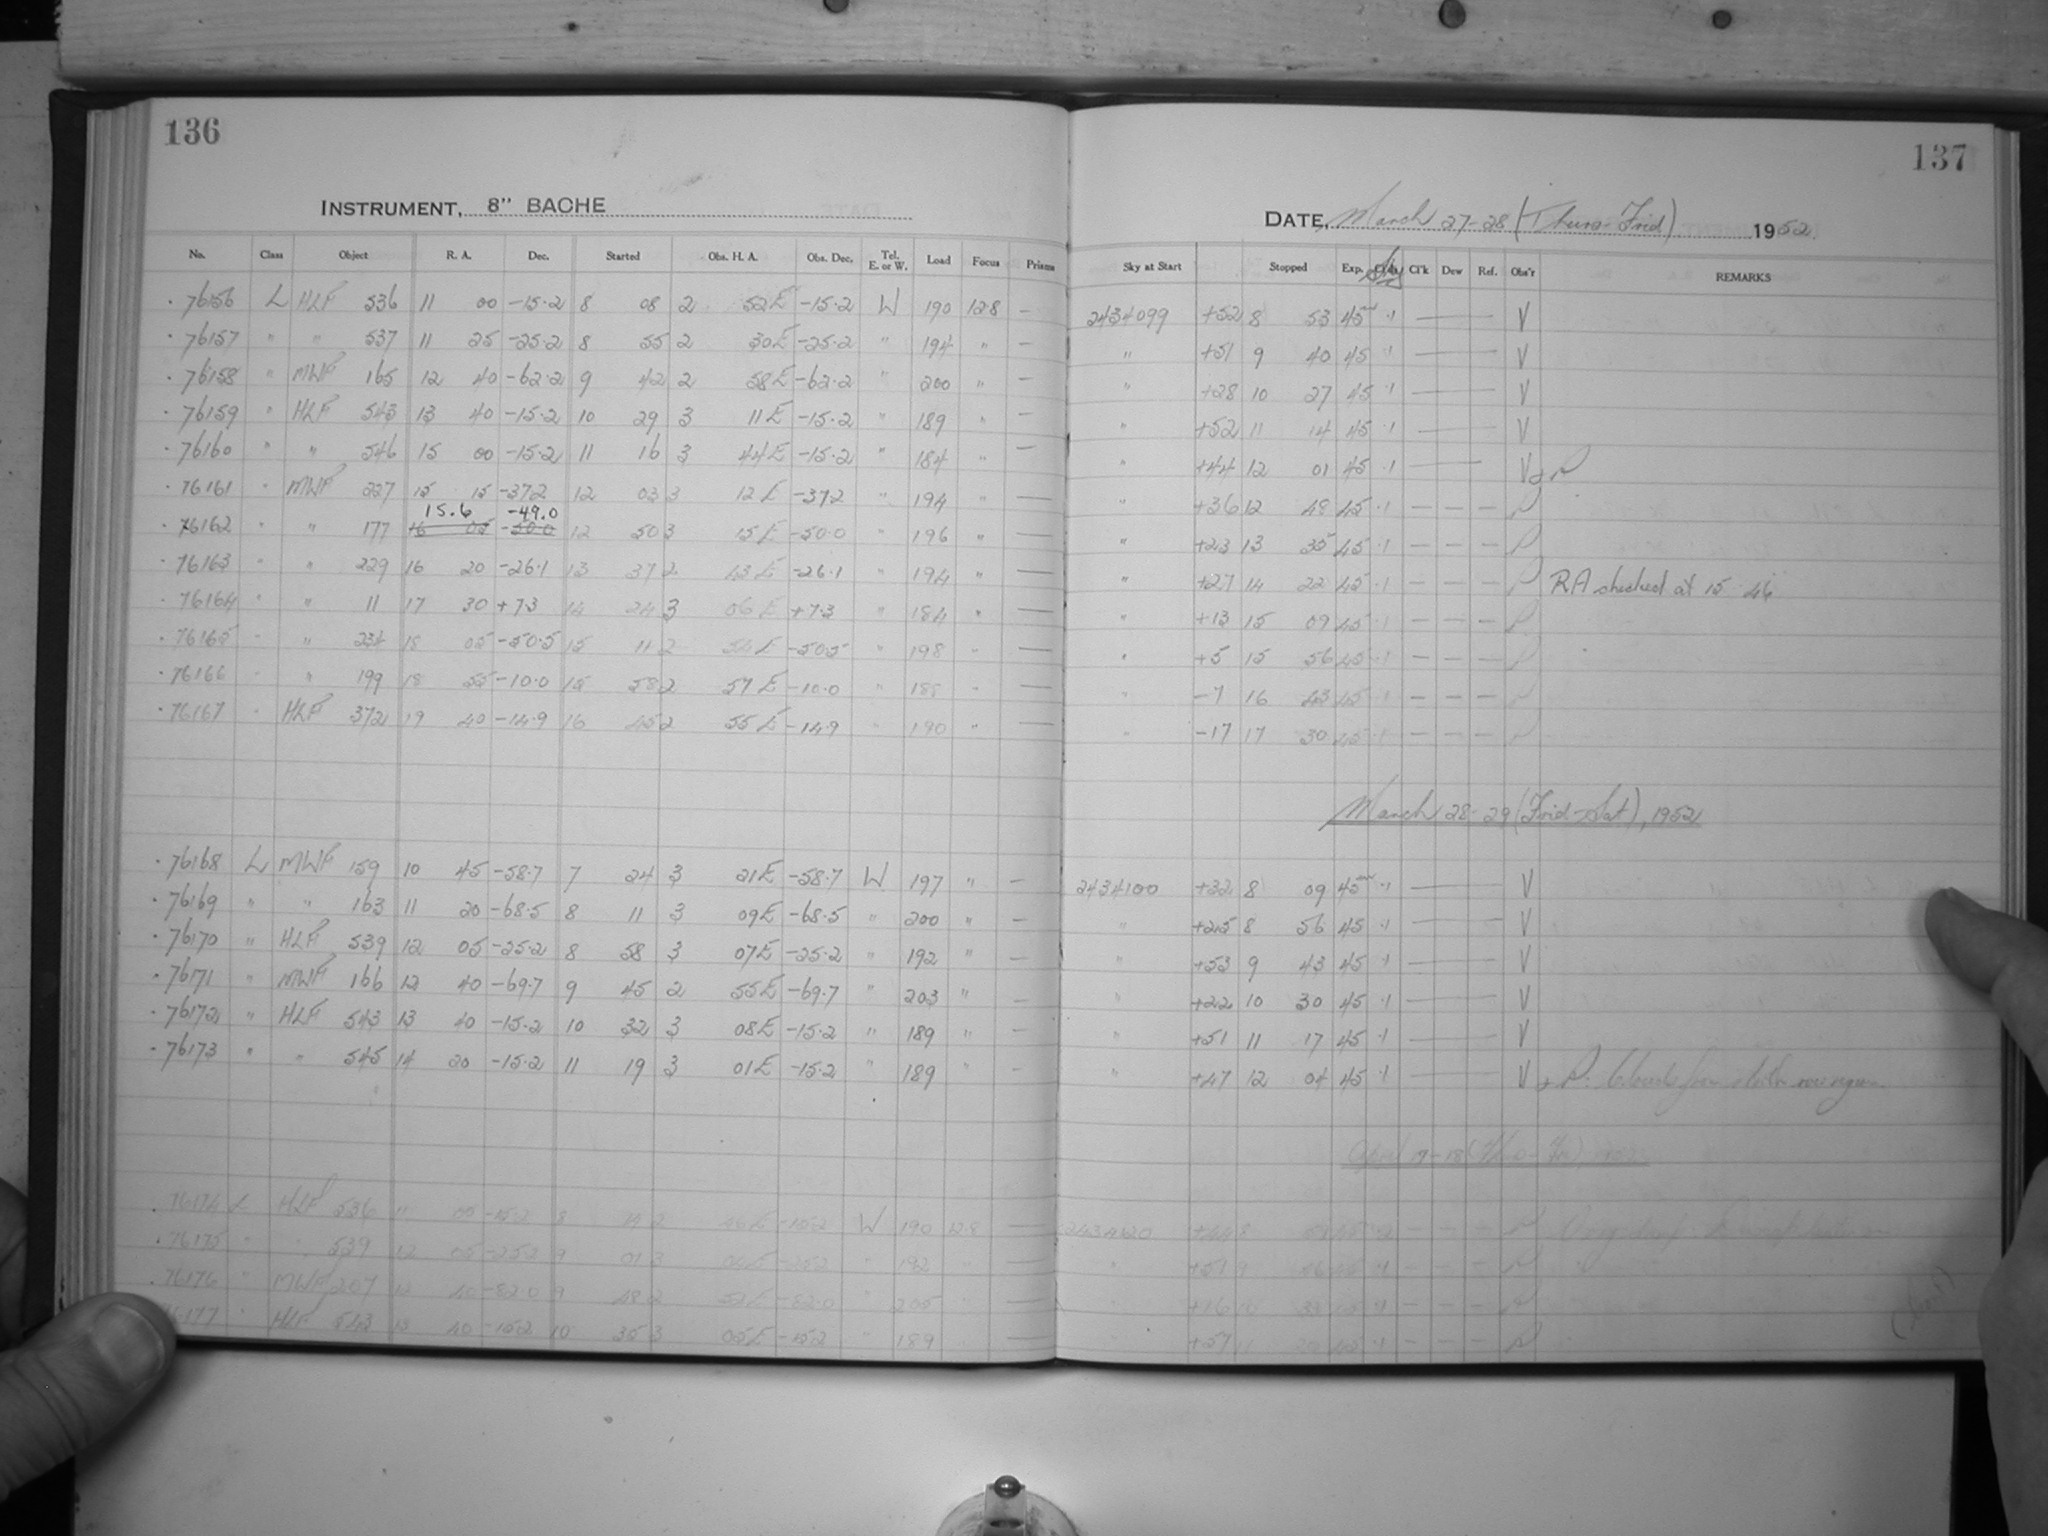 136
INSTRUMENT, 8" BACHE
No. Class Object R. A. Dec. Started Obs. H. A. Obs. Dec. Tel. E. or W. Load Focus Prisms
76156 L HLF 536 11 00 -15.2 8 08 2 52E -15.2 W 190 128 —
76157 " " 537 11 25 -25.2 8 55 2 30E -25.2 " 194 " —
76158 " MWF 165 12 40 -62.2 9 42 2 58E -62.2 " 200 " —
76159 " HLF 543 13 40 -15.2 10 29 3 11E -15.2 " 189 " —
76160 " " 546 15 00 -15.2 11 16 3 44E -15.2 " 184 " —
76161 " MWF 227 15 15 -37.2 12 03 3 12E -37.2 " 194 " —
15.6 -49.0
76162 " " 177 16 05 -50.0 12 50 3 15E -50.0 " 196 " —
76163 " " 229 16 20 -26.1 13 37 2 43E -26.1 " 194 " —
76164 " " 11 17 30 +7.3 14 24 3 06E +7.3 " 184 " —
76165 " " 234 18 05 -50.5 15 11 2 54E -50.5 " 198 " —
76166 " " 199 18 55 -10.0 15 58 2 57E -10.0 " " —
76167 " HLF 372 19 40 -14.9 16 45 2 55E -14.9 " 190 " —
76168 L MWF 159 10 45 -58.7 7 24 3 21E -58.7 W 197 " —
76169 " " 163 11 20 -68.5 8 11 3 09E -68.5 " 200 " —
76170 " HLF 539 12 05 -25.2 8 58 3 07E -25.2 " 192 " —
76171 " MWF 166 12 40 -69.7 9 45 2 55E -69.7 " 203 " —
76172 " HLF 543 13 40 -15.2 10 32 3 08E -15.2 " 189 " —
76173 " " 545 14 20 -15.2 11 19 3 01E -15.2 " 189 " —
76174 L HLF 536 11 00 -15.2 8 2 -15.2 W 190 12.8 —
76175 " " 539 12 05 -25.2 9 01 3 -25.2 " 192 " —
76176 " MWF 207 12 40 -82.0 9 48 2 52E -82.0 " 205 " —
76177 " HLF 543 13 40 -15.2 10 35 3 05E -15.2 " 189 —
137
DATE, March 27-28 (Thurs-Frid) 1952.
Sky at Start Stopped Exp. Cl'k Dew Ref. Obs'r REMARKS
2434099 +52 8 53 45m .1 — V
" +51 9 40 45 .1 — V
" +28 10 27 45 .1 — V
" +52 11 14 45 .1 — V
" +44 12 01 45 .1 — V
" +36 12 48 45 .1 — — —
" +23 13 35 45 .1 — — —
" +27 14 22 45 .1 — — — RA checked at 15 46
" +13 15 09 45 .1 — — —
" +5 15 56 45 .1 — — —
" -7 16 43 45 .1 — — —
" -17 17 30 45 .1 — — —
March 28-29 (Frid-Sat), 1952
2434100 +32 8 09 45m .1 — V
" +25 8 56 45 .1 — V
" +53 9 43 45 .1 — V
" +22 10 30 45 .1 — V
" +51 11 17 45 .1 — V
" +47 12 04 45 .1 — V Clouds from
April 17-18
2434120 +44 8 45 .1 — — —
" +51 9 46 45 .1 — — —
" +16 10 45 .1 — — —
" +57 11 20 45 .1 — — —